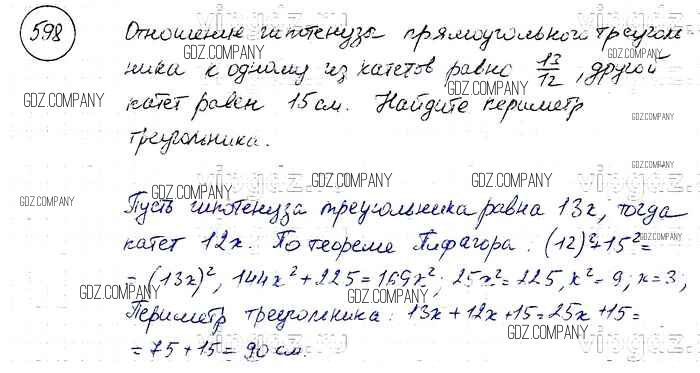 598
Отношение гипотенузы прямоугольного треуголь
ника к одному из катетов равно 13/12, другой
катет равен 15 см. Найдите периметр
треугольника.
Пусть гипотенуза треугольника равна 13x, тогда
катет 12x. По теореме Пифагора: (12)²+15²=
= (13x)², 144x²+225=169x²; 25x²=225, x²=9; x=3;
Периметр треугольника: 13x+12x+15=25x+15=
=75+15=90 см.
GDZ.COMPANY
GDZ.COMPANY
GDZ.COMPANY
GDZ.COMPANY
GDZ.COMPANY
GDZ.COMPANY
GDZ.COMPANY
GDZ.COMPANY
GDZ.COMPANY
GDZ.COMPANY
GDZ.COMPANY
GDZ.COMPANY
GDZ.COMPANY
GDZ.COMPANY